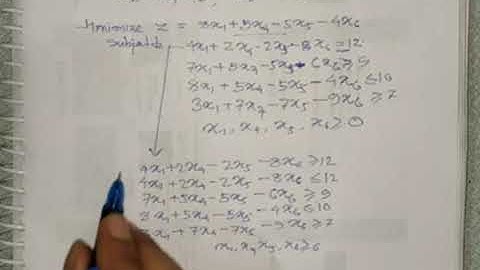 Minimize Z = 3x₁+5x₄-5x₅-4x₆
Subject to
4x₁+2x₄-2x₅-8x₆=12
7x₁+5x₄-5x₅-6x₆≥9
8x₁+5x₄-5x₅-4x₆≤10
3x₁+7x₄-7x₅-9x₆≥7
x₁, x₄, x₅, x₆≥0
4x₁+2x₄-2x₅-8x₆≥12
4x₁+2x₄-2x₅-8x₆≤12
7x₁+5x₄-5x₅-6x₆≥9
8x₁+5x₄-5x₅-4x₆≤10
+7x₄-7x₅-9x₆≥7
x₁, x₄, x₅, x₆≥0